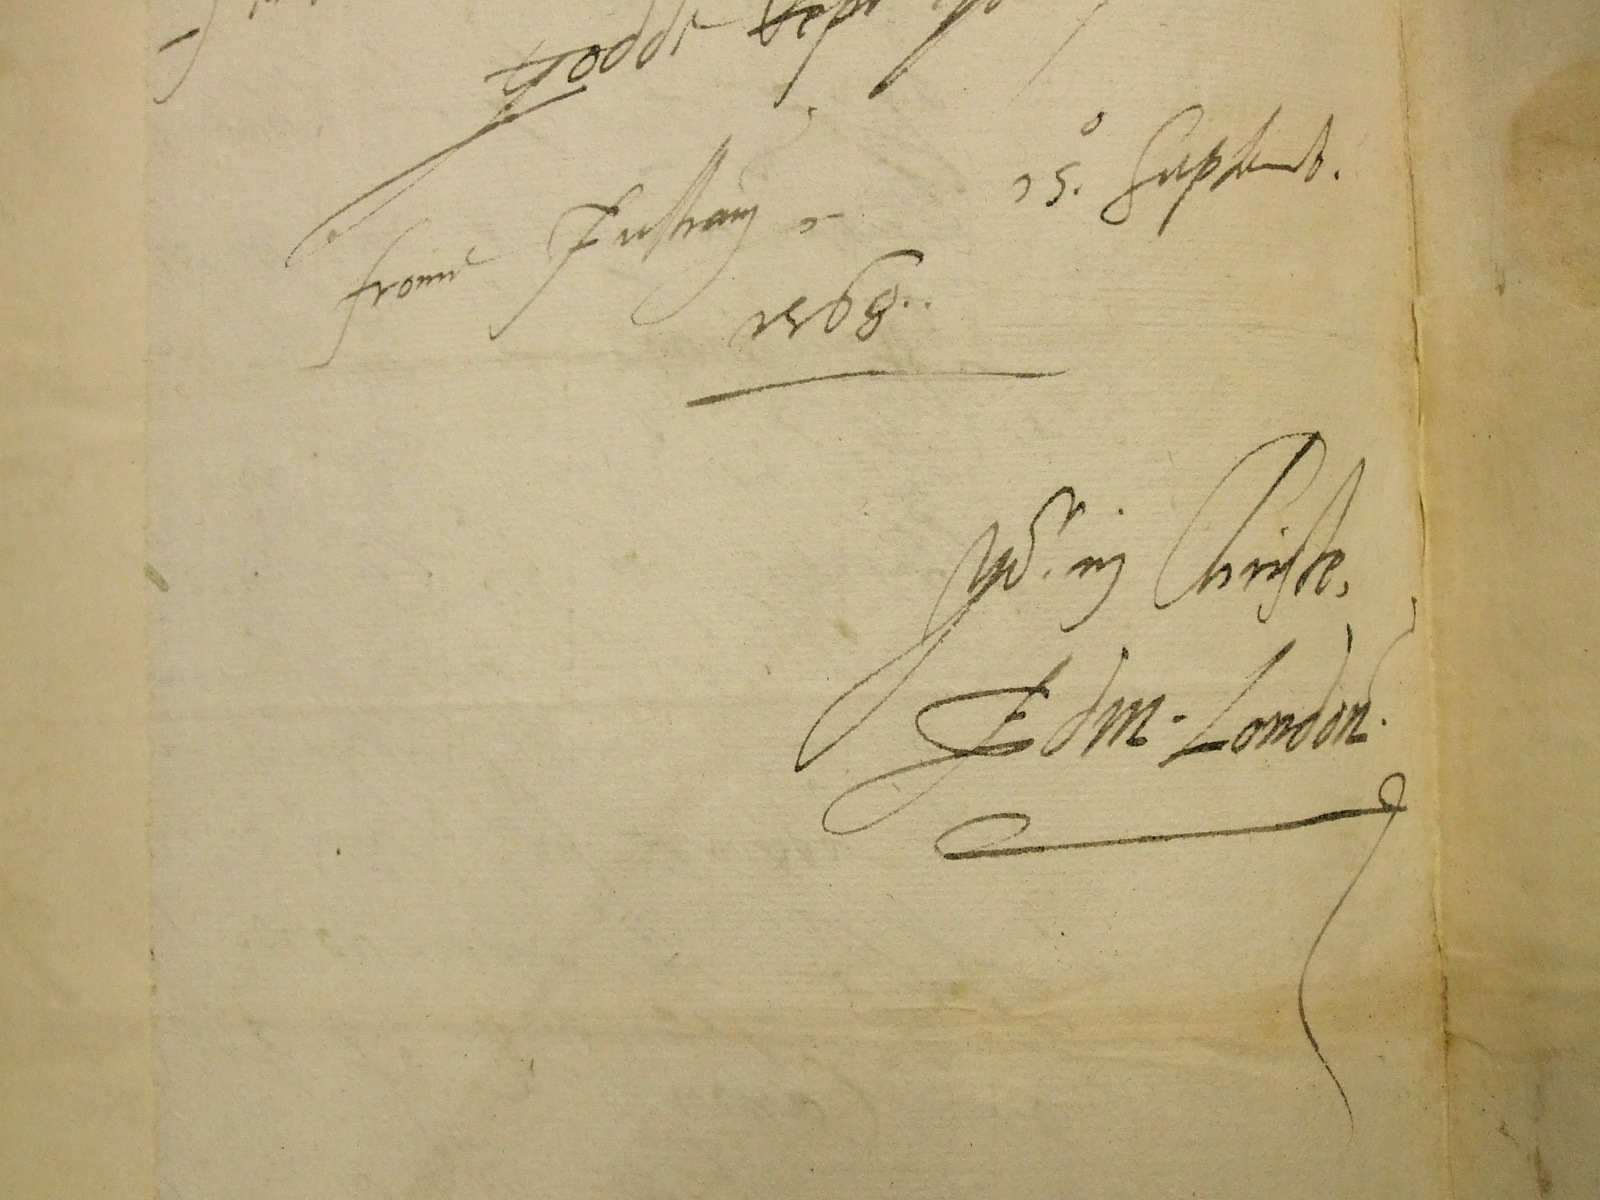 Godde kepe yo
frome Fulham 15.° Septemb.
1568..
Yors. in Christe,
Edm. London.